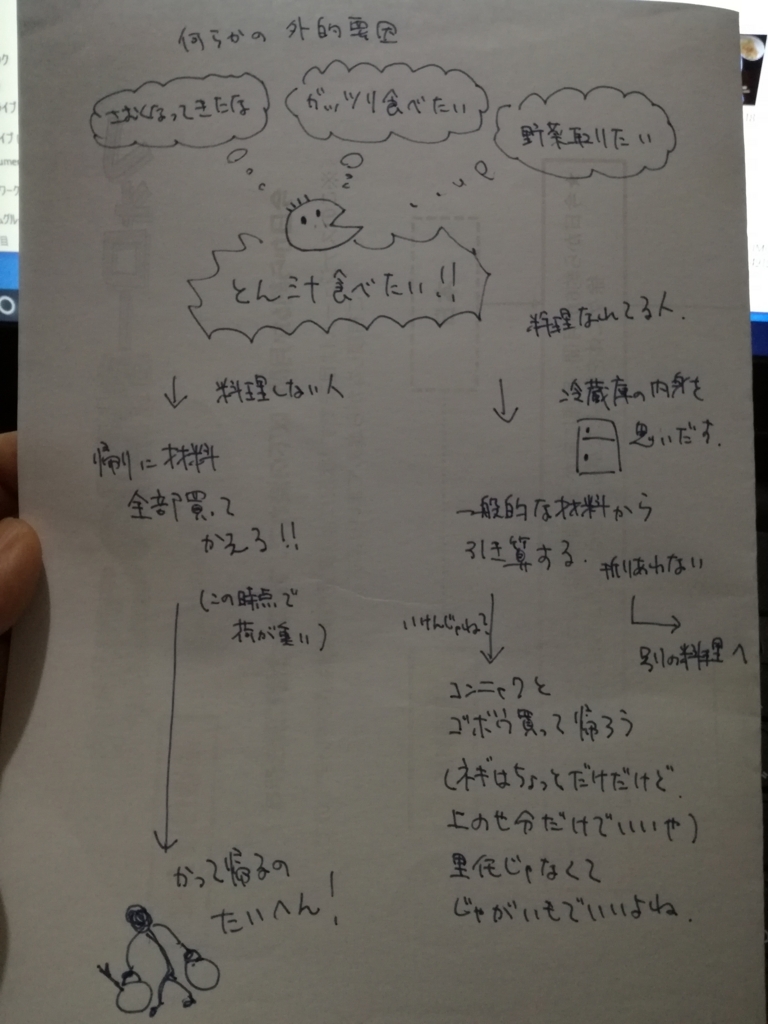 何らかの 外的要因
さむくなってきたな
ガッツリ食べたい
野菜取りたい
とん汁食べたい!!
料理しない人
帰りに材料
全部買って
かえろ!!
(この時点で
荷が重い)
かって帰るの
たいへん!
料理なれてる人.
冷蔵庫の内身を
思いだす.
一般的な材料から
引き算する.
折りあわない
別の料理へ
いけんじゃね?
コンニャクと
ゴボウ買って帰ろう
(ネギはちょっとだけだけど.
上のせ分だけでいいや)
里芋じゃなくて
じゃがいもでいいよね.